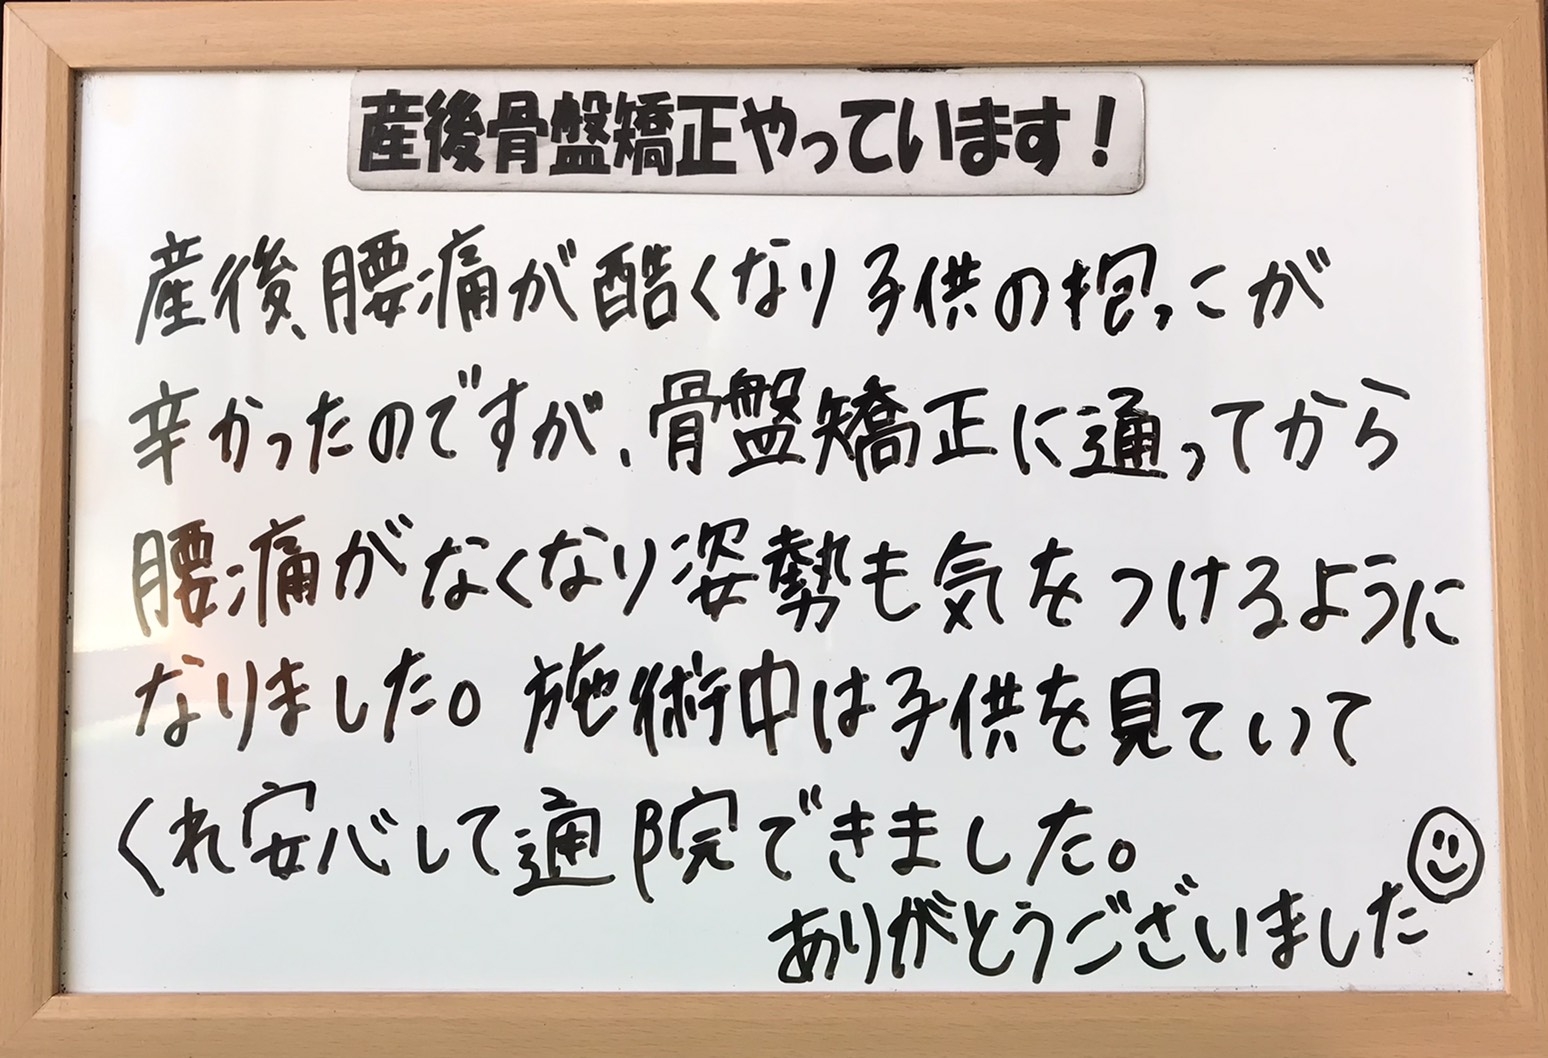 産後骨盤矯正やっています！
産後、腰痛が酷くなり子供の抱っこが
辛かったのですが、骨盤矯正に通ってから
腰痛がなくなり姿勢も気をつけるように
なりました。施術中は子供を見ていて
くれ安心して通院できました。
ありがとうございました